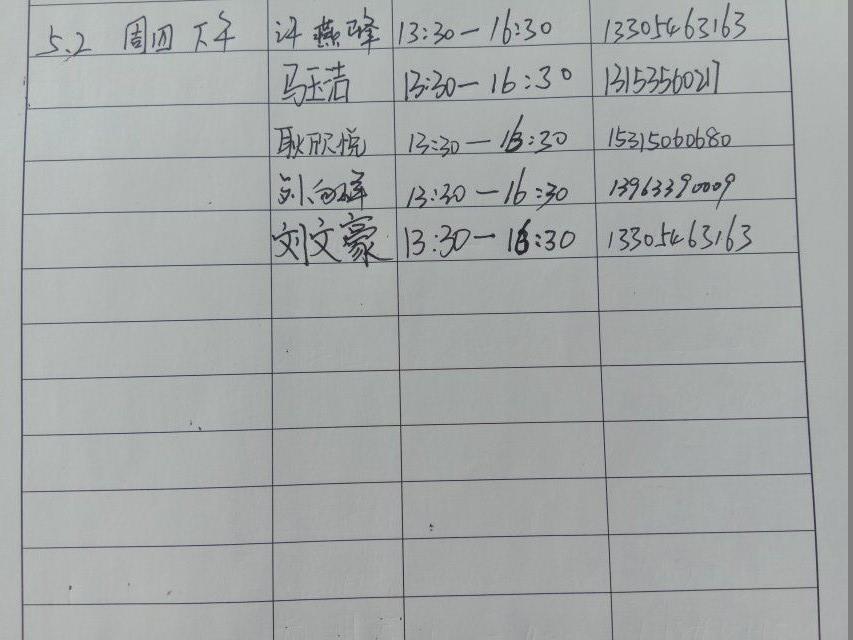 5.2 周四 下午 许燕峰 13:30-16:30 13305463163
马玉洁 13:30-16:30 13153560217
耿欣悦 13:30-16:30 15315060680
刘 13:30-16:30 13963390009
刘文豪 13:30-16:30 13305463163